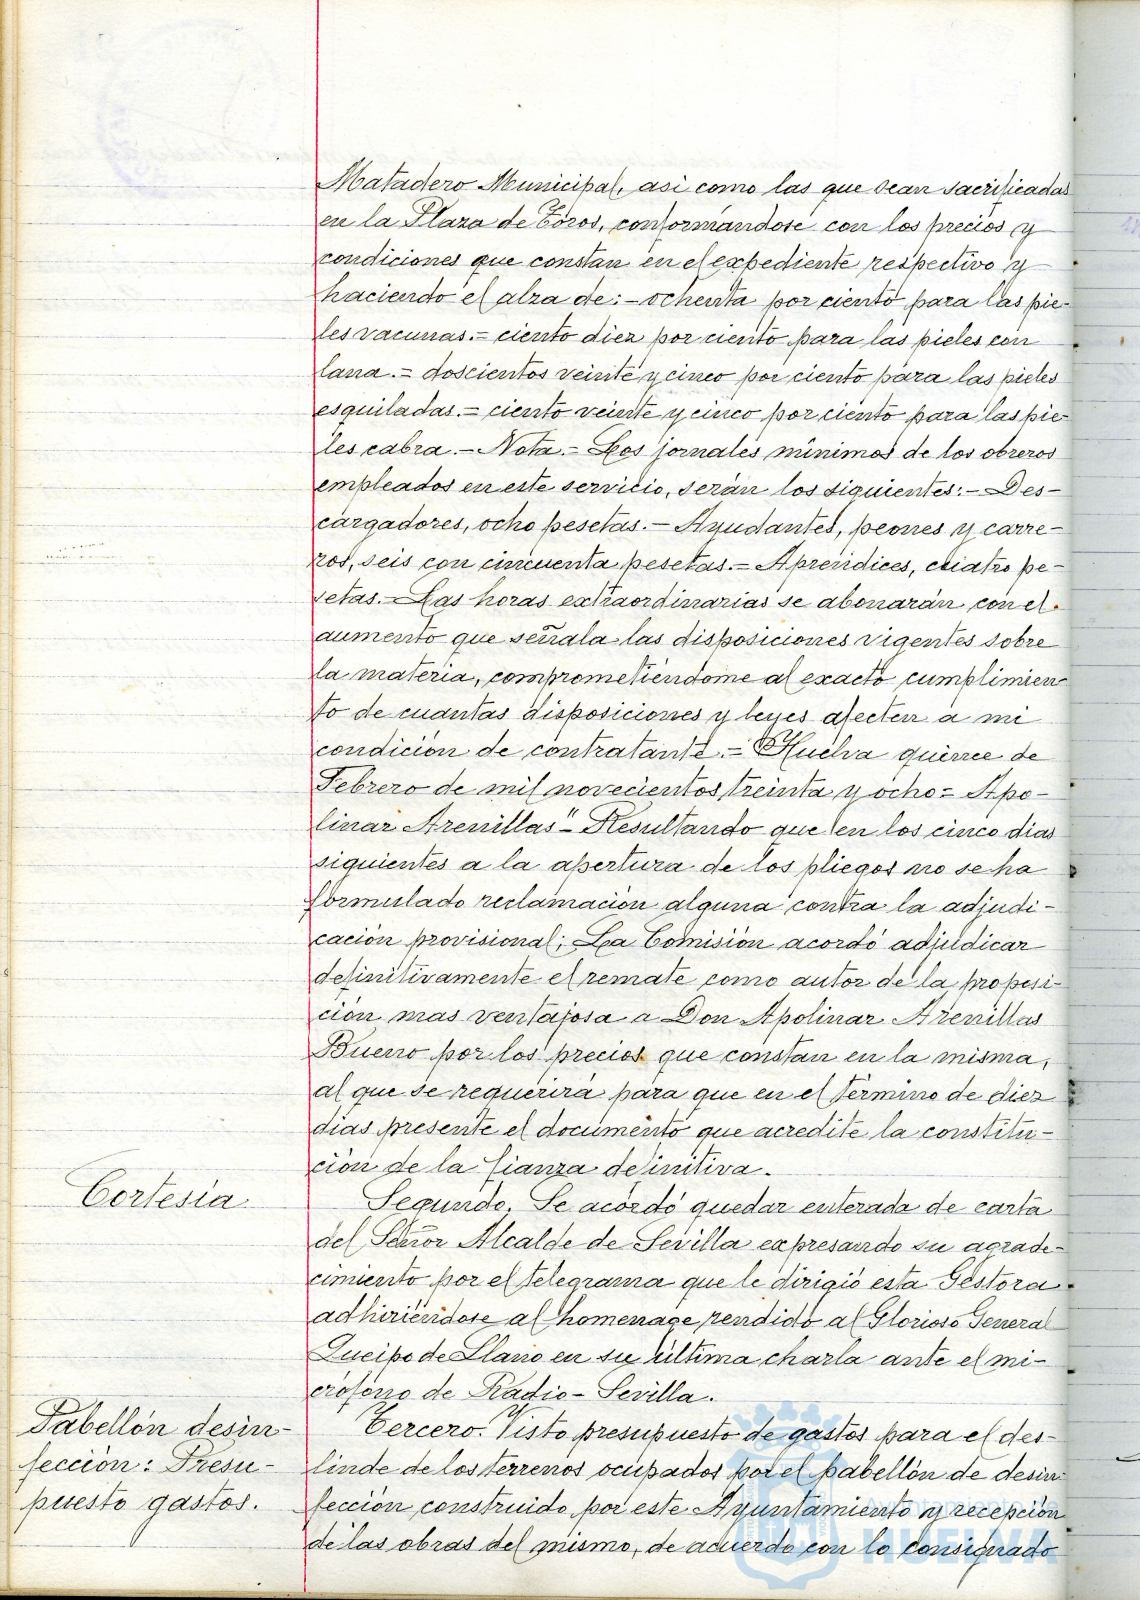 Matadero Municipal, asi como las que sean sacrificadas
en la Plaza de Toros, conformándose con los precios y
condiciones que constan en el expediente respectivo y
haciendo el alza de:- ochenta por ciento para las pie-
les vacunas.= ciento diez por ciento para las pieles con
lana.= doscientos veinte y cinco por ciento para las pieles
esquiladas.= ciento veinte y cinco por ciento para las pie-
les cabra.- Nota.= Los jornales mínimos de los obreros
empleados en este servicio, serán los siguientes:- Des-
cargadores, ocho pesetas.- Ayudantes, peones y carre-
ros, seis con cincuenta pesetas.= Aprendices, cuatro pe-
setas.- Las horas extraordinarias se abonarán con el
aumento que señala las disposiciones vigentes sobre
la materia, comprometiéndome al exacto cumplimien-
to de cuantas disposiciones y leyes afecten a mi
condición de contratante.= Huelva quince de
Febrero de mil novecientos treinta y ocho= Apo-
linar Arenillas"- Resultando que en los cinco dias
siguientes a la apertura de los pliegos no se ha
formulado reclamación alguna contra la adjudi-
cación provisional; La Comisión acordó adjudicar
definitivamente el remate como autor de la proposi-
ción mas ventajosa a Don Apolinar Arenillas
Bueno por los precios que constan en la misma,
al que se requerirá para que en el término de diez
dias presente el documento que acredite la constitu-
ción de la fianza definitiva.
Cortesía
Segundo. Se acordó quedar enterada de carta
del Señor Alcalde de Sevilla expresando su agrade-
cimiento por el telegrama que le dirigió esta Gestora
adhiriéndose al homenage rendido al Glorioso General
Queipo de Llano en su última charla ante el mi-
crófono de Radio-Sevilla.
Pabellón desin-
fección: Presu-
puesto gastos.
Tercero. Visto presupuesto de gastos para el des-
linde de los terrenos ocupados por el pabellón de desin-
fección construido por este Ayuntamiento y recepción
de las obras del mismo, de acuerdo con lo consignado
HUELVA